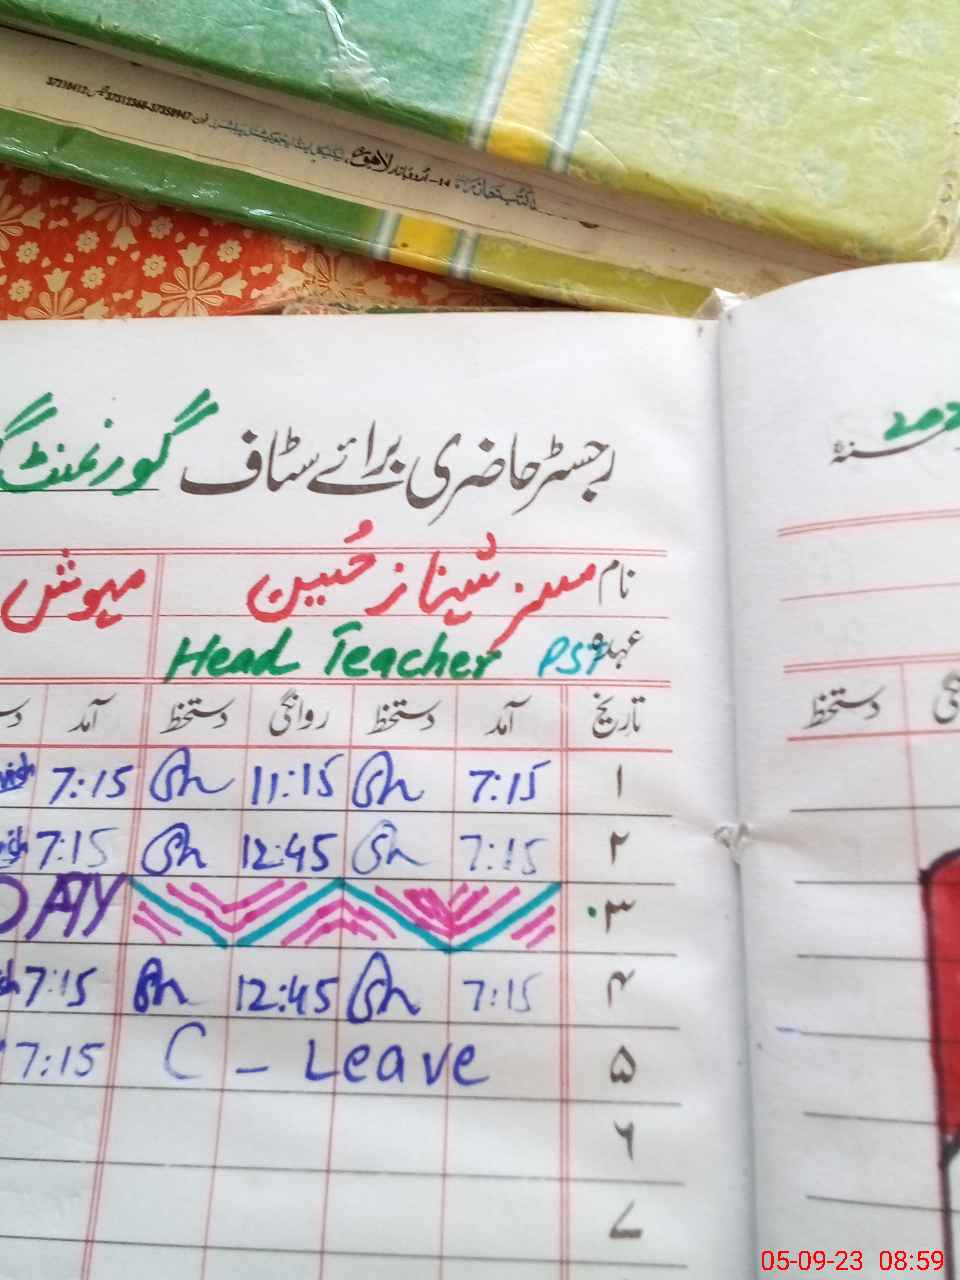 فون: 37312368-37350947 فیکس: 37310412
کتب خانہ 14-اُردو بازار لاہور
رجسٹر حاضری برائے سٹاف گورنمنٹ
سنہ
نام مسز شہناز حسین مہوش
عہدہ PST Head Teacher
تاریخ آمد دستخط روانگی دستخط آمد
دستخط
۱ 7:15 Sh 11:15 Sh 7:15
۲ 7:15 Sh 12:45 Sh 7:15
۳ DAY
۴ 7:15 Sh 12:45 Sh 7:15
۵ C - Leave 7:15
۶
۷
05-09-23 08:59